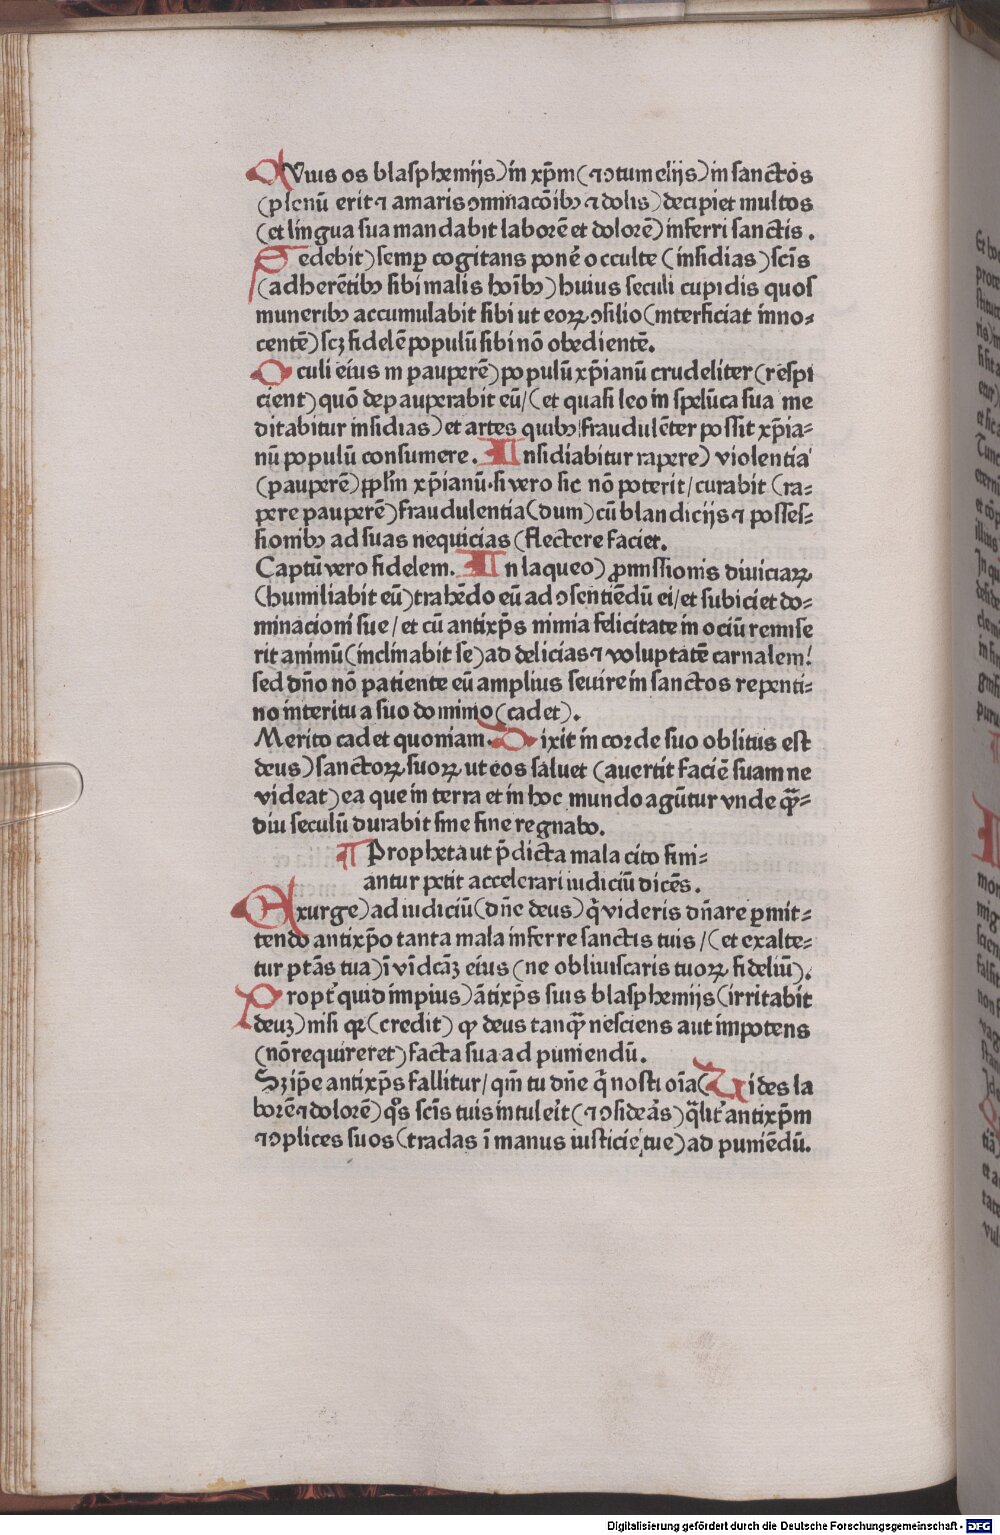 QVius os blasphemijs) in xp̄m (⁊ ↄtumelijs) in sanctos
(plenū erit ⁊ amaris ↄminacōibꝫ ⁊ dolis) decipiet multos
(et lingua sua mandabit laborē et dolorē) inferri sanctis.
Sedebit) semꝑ cogitans ponē occulte (insidias) scīs
(adherētibꝫ sibi malis hoībꝫ) huius seculi cupidis quos
muneribꝫ accumulabit sibi ut eoꝝ ↄsilio (interficiat inno⸗
centē) scꝫ fidelē populū sibi nō obedientē.
Oculi eius in pauperē) populū xp̄ianū crudeliter (respi
cient) quō depauperabit eū/ (et quasi leo in spelūca sua me
ditabitur insidias) et artes quibꝫ fraudulēter possit xp̄ia⸗
nū populū consumere. Insidiabitur rapere) violentia
(pauperē) pp̄lm xp̄ianū. si vero sic nō poterit/ curabit (ra⸗
pere pauperē) fraudulentia (dum) cū blandicijs ⁊ posses⸗
sionibꝫ ad suas nequicias (flectere faciet.
Captū vero fidelem. In laqueo) ꝓmissionis diuiciaꝝ
(humiliabit eū) trahēdo eū ad ↄsentiēdū ei/ et subiciet do⸗
minacioni sue/ et cū antixp̄s nimia felicitate in ociū remise
rit animū (inclinabit se) ad delicias ⁊ voluptatē carnalem!
sed dn̄o nō patiente eū amplius seuire in sanctos repenti⸗
no interitu a suo dominio (cadet).
Merito cadet quoniam. Dixit in corde suo oblitus est
deus) sanctoꝝ suoꝝ ut eos saluet (auertit faciē suam ne
videat) ea que in terra et in hoc mundo agūtur vnde qȝ̄⸗
diu seculū durabit sine fine regnabo.
¶ Propheta ut p̄dicta mala cito fini⸗
antur petit accelerari iudiciū dicēs.
Exurge) ad iudiciū (dn̄e deus) q̄ videris dn̄are ꝑmit⸗
tendo antixp̄o tanta mala inferre sanctis tuis / (et exalte⸗
tur ptās tua) ī vīdcāꝫ eius (ne obliuiscaris tuoꝝ fideliū).
Propt᷑ quid impius) ātixp̄s suis blasphemijs (irritabit
deuꝫ) nisi qꝛ (credit) ꝙ deus tanqȝ̄ nesciens aut impotens
(nō requireret) facta sua ad puniendū.
Sꝫ ip̄e antixp̄s fallitur/ qm̄ tu dn̄e q̄ nosti oīa (Vides la
borē ⁊ dolorē) qͦs scīs tuis intuleīt (⁊ ↄsideās) q̄lit᷑ antixp̄m
⁊ ↄplices suos (tradas ī manus iusticie tue) ad puniēdū.
Digitalisierung gefördert durch die Deutsche Forschungsgemeinschaft - DFG